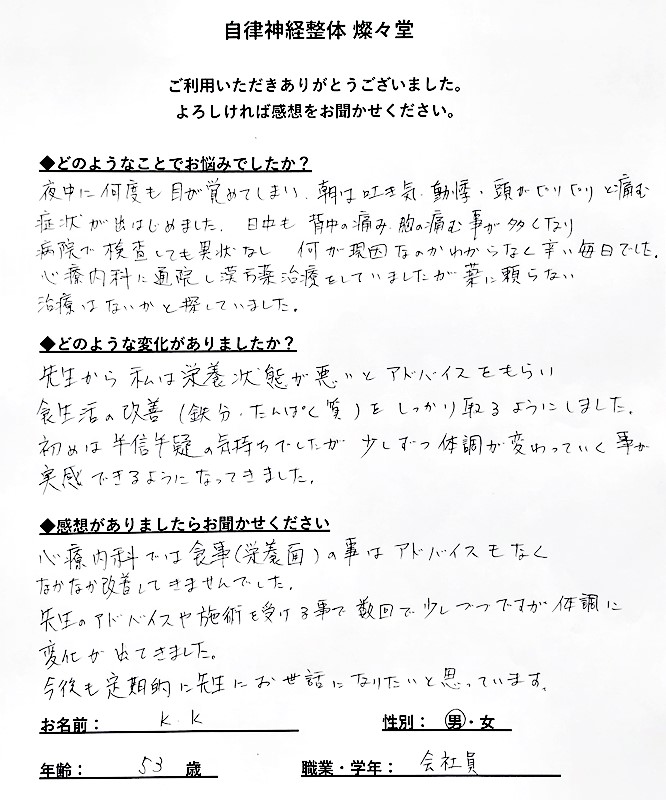 自律神経整体 燦々堂
ご利用いただきありがとうございました。
よろしければ感想をお聞かせください。
◆どのようなことでお悩みでしたか？
夜中に何度も目が覚めてしまい、朝は吐き気、動悸・頭がピリピリと痛む
症状が出はじめました。日中も背中の痛み、胸の痛む事が多くなり
病院で検査しても異状なし 何が原因なのかわからなく辛い毎日でした。
心療内科に通院し漢方薬治療をしていましたが薬に頼らない
治療はないかと探していました。
◆どのような変化がありましたか？
先生から私は栄養状態が悪いとアドバイスをもらい
食生活の改善（鉄分・たんぱく質）をしっかり取るようにしました。
初めは半信半疑の気持ちでしたが少しずつ体調が変わっていく事が
実感できるようになってきました。
◆感想がありましたらお聞かせください
心療内科では食事（栄養面）の事はアドバイスもなく
なかなか改善してきませんでした。
先生のアドバイスや施術を受ける事で数回で少しづつですが体調に
変化が出てきました。
今後も定期的に先生にお世話になりたいと思っています。
お名前： K.K 性別： 男・女
年齢： 53 歳 職業・学年： 会社員